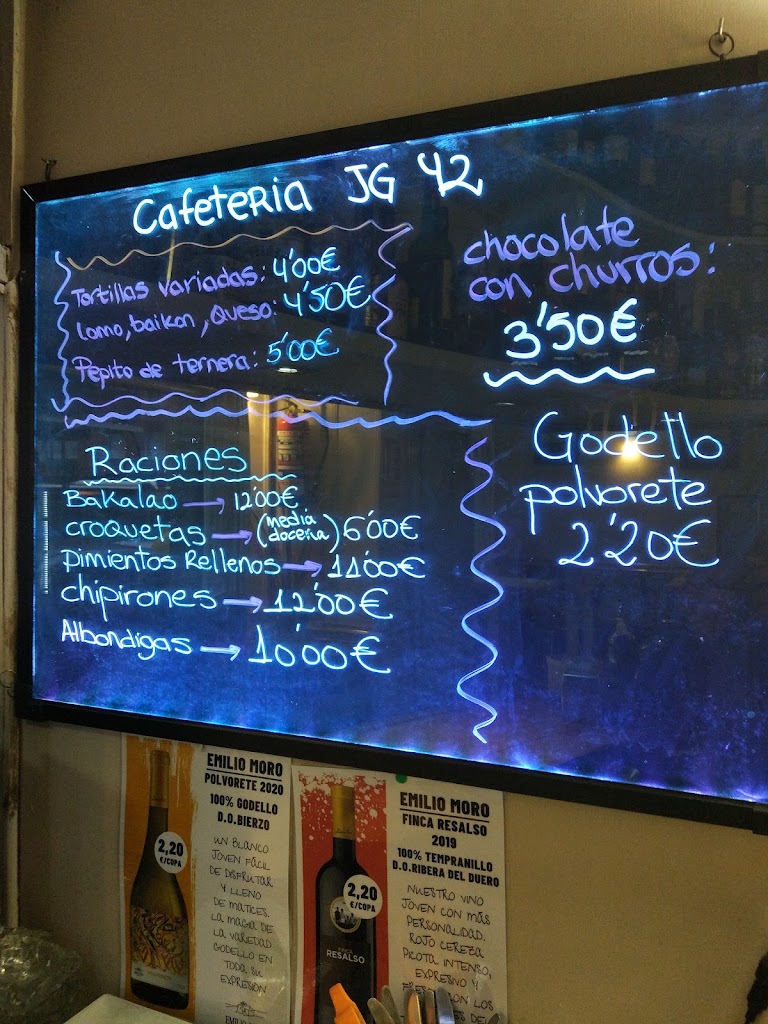 Cafeteria JG 42
Tortillas variadas: 4'00€
Lomo, baikon, queso: 4'50€
Pepito de ternera: 5'00€
chocolate
con churros:
3'50€
Raciones
Bakalao → 12'00€
croquetas → (media docena) 6'00€
Pimientos Rellenos → 11'00€
chipirones → 12'00€
Albondigas → 10'00€
Godello
polvorete
2'20€
EMILIO MORO
POLVORETE 2020
100% GODELLO
D.O.BIERZO
UN BLANCO
JOVEN FÁCIL
DE DISFRUTAR
Y LLENO
DE MATICES.
LA MAGIA DE
LA VARIEDAD
GODELLO EN
TODA SU
EXPRESIÓN
2,20
€/COPA
EMILIO MORO
FINCA RESALSO
2019
100% TEMPRANILLO
D.O.RIBERA DEL DUERO
NUESTRO VINO
JOVEN CON MÁS
PERSONALIDAD.
ROJO CEREZA
PICOTA INTENSO,
EXPRESIVO Y
CON LOS
2,20
€/COPA
FINCA
RESALSO